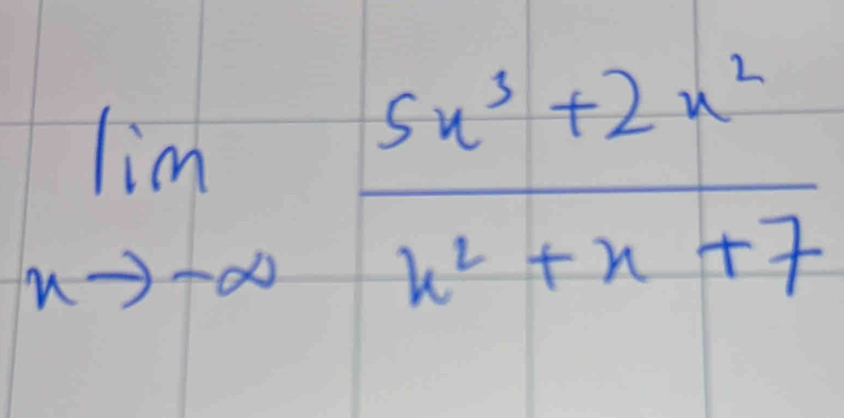 lim 5x³ + 2x²
x → -∞ x² + x + 7